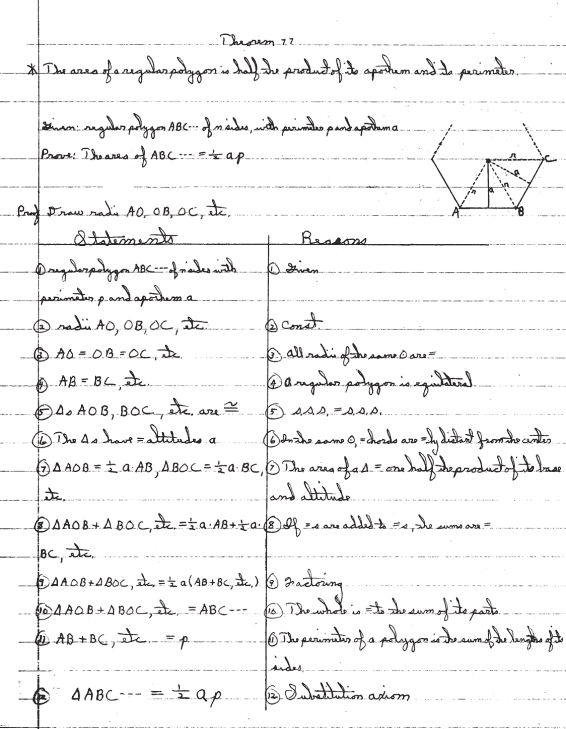 Theorem 77
* The area of a regular polygon is half the product of its apothem and its perimeter.
Given: regular polygon ABC··· of n sides, with perimeter p and apothem a
Prove: The area of ABC ··· = ½ ap
r
C
a
r
a
r
A
B
Proof Draw radii AO, OB, OC, etc.
Statements Reasons
① regular polygon ABC --- of n sides with ① Given
perimeter p and apothem a
② radii AO, OB, OC, etc. ② Const.
③ AO = OB = OC, etc ③ All radii of the same O are =
④ AB = BC, etc. ④ A regular polygon is equilateral
⑤ △s AOB, BOC, etc. are ≅ ⑤ s.s.s. = s.s.s.
⑥ The △s have = altitudes a ⑥ In the same O, = chords are = ly distant from the center
⑦ △AOB = ½ a·AB, △BOC = ½ a·BC, ⑦ The area of a △ = one half the product of its base
etc. and altitude
⑧ △AOB + △BOC, etc. = ½ a·AB + ½ a· ⑧ If =s are added to =s, the sums are =
BC, etc.
⑨ △AOB + △BOC, etc. = ½ a(AB + BC, etc.) ⑨ Factoring
⑩ △AOB + △BOC, etc. = ABC --- ⑩ The whole is = to the sum of its parts
⑪ AB + BC, etc = p ⑪ The perimeter of a polygon is the sum of the lengths of its
sides.
⑫ △ABC ---- = ½ ap ⑫ Substitution axiom